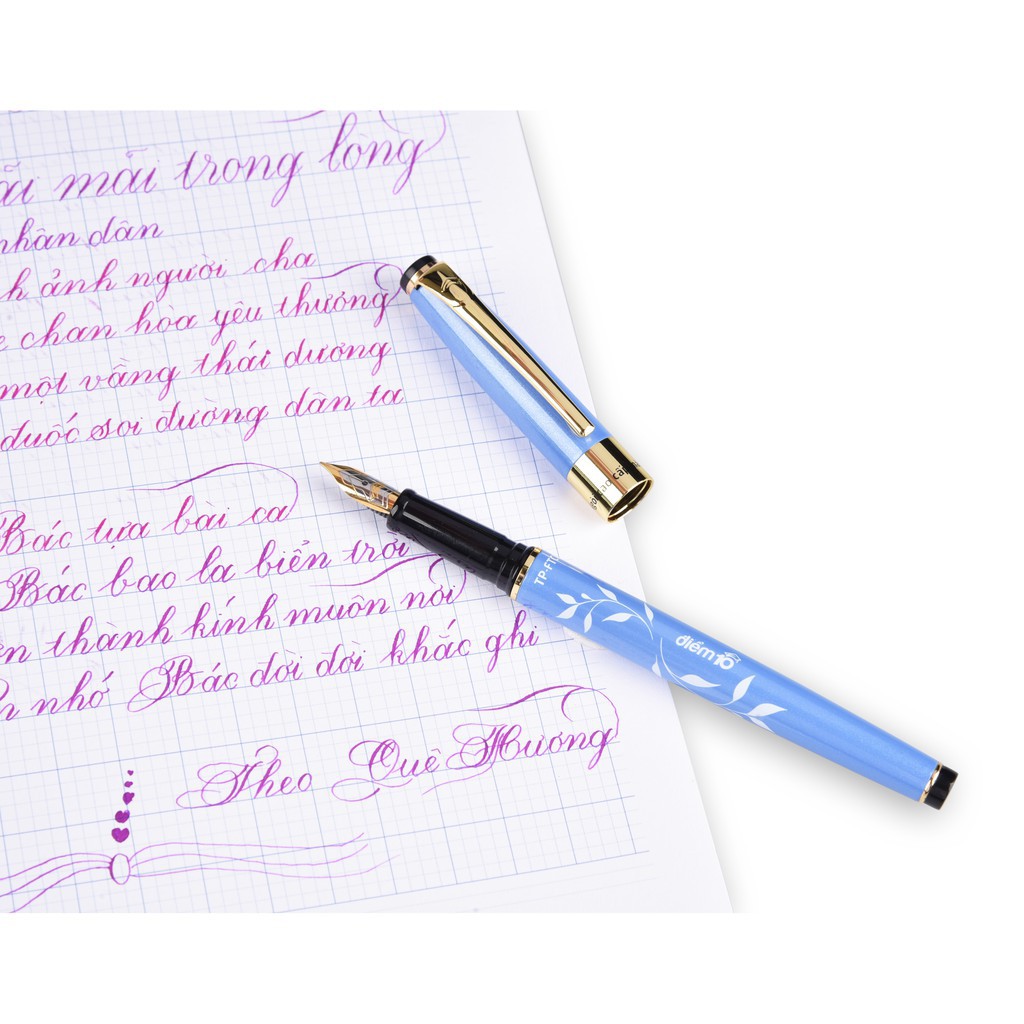 mãi trong lòng
nhân dân
ảnh người cha
chan hòa yêu thương
một vầng thái dương
đuốc soi đường dân ta
Bác tựa bài ca
Bác bao la biển trời
thành kính muôn nơi
nhớ Bác đời đời khắc ghi
Theo Quê Hương
TP-F
điểm 10